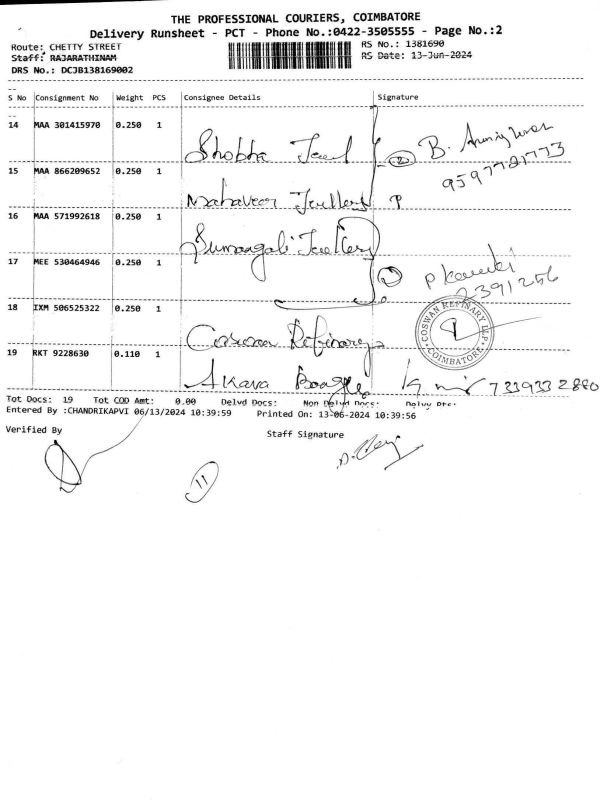 THE PROFESSIONAL COURIERS, COIMBATORE
Delivery Runsheet - PCT - Phone No.:0422-3505555 - Page No.:2
Route: CHETTY STREET
RS No.: 1381690
Staff: RAJARATHINAM
RS Date: 13-Jun-2024
DRS No.: DCJB138169002
S No Consignment No Weight PCS Consignee Details Signature
14 MAA 301415970 0.250 1 Shobha
B.
15 MAA 866209652 0.250 1 Mahaveer Jewellers
9597721773
16 MAA 571992618 0.250 1 Sumangali Jewellery
17 MEE 530464946 0.250 1
18 IXM 506525322 0.250 1 Coswan Refinary
COSWAN REFINARY LLP
COIMBATORE
19 RKT 9228630 0.110 1
7339332880
Tot Docs: 19 Tot COD Amt: 0.00 Delvd Docs: Non Delvd Docs:
Entered By :CHANDRIKAPVI 06/13/2024 10:39:59 Printed On: 13-06-2024 10:39:56
Verified By
Staff Signature
11